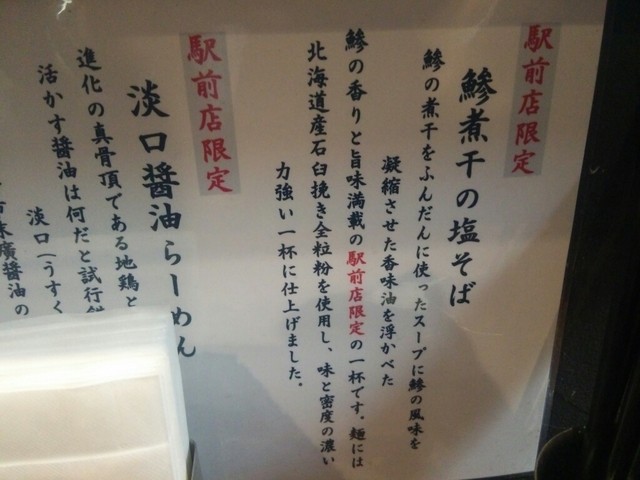 駅前店限定
鰺煮干の塩そば
鰺の煮干をふんだんに使ったスープに鰺の風味を
凝縮させた香味油を浮かべた
鰺の香りと旨味満載の駅前店限定の一杯です。麺には
北海道産石臼挽き全粒粉を使用し、味と密度の濃い
力強い一杯に仕上げました。
駅前店限定
淡口醤油らーめん
進化の真骨頂である地鶏と
活かす醤油は何だと試行錯
淡口(うすく
味廣醤油の